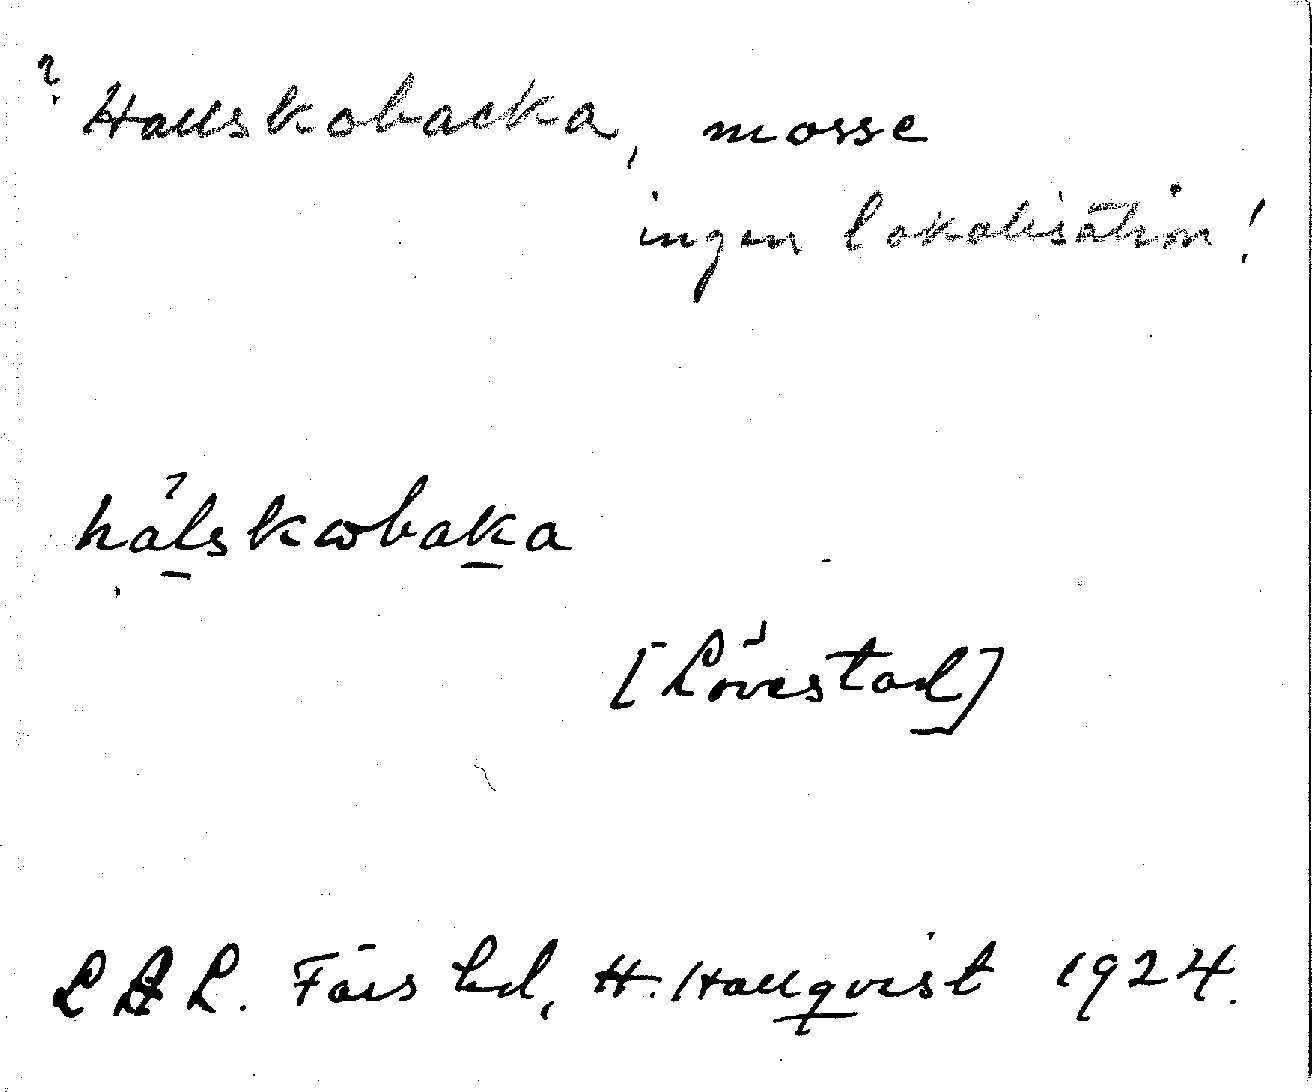 ? Hallskobacka, mosse
ingen lokalisation!
hálskωbaka
[Lövestad]
LAL. Färs hd, H. Hallqvist 1924.